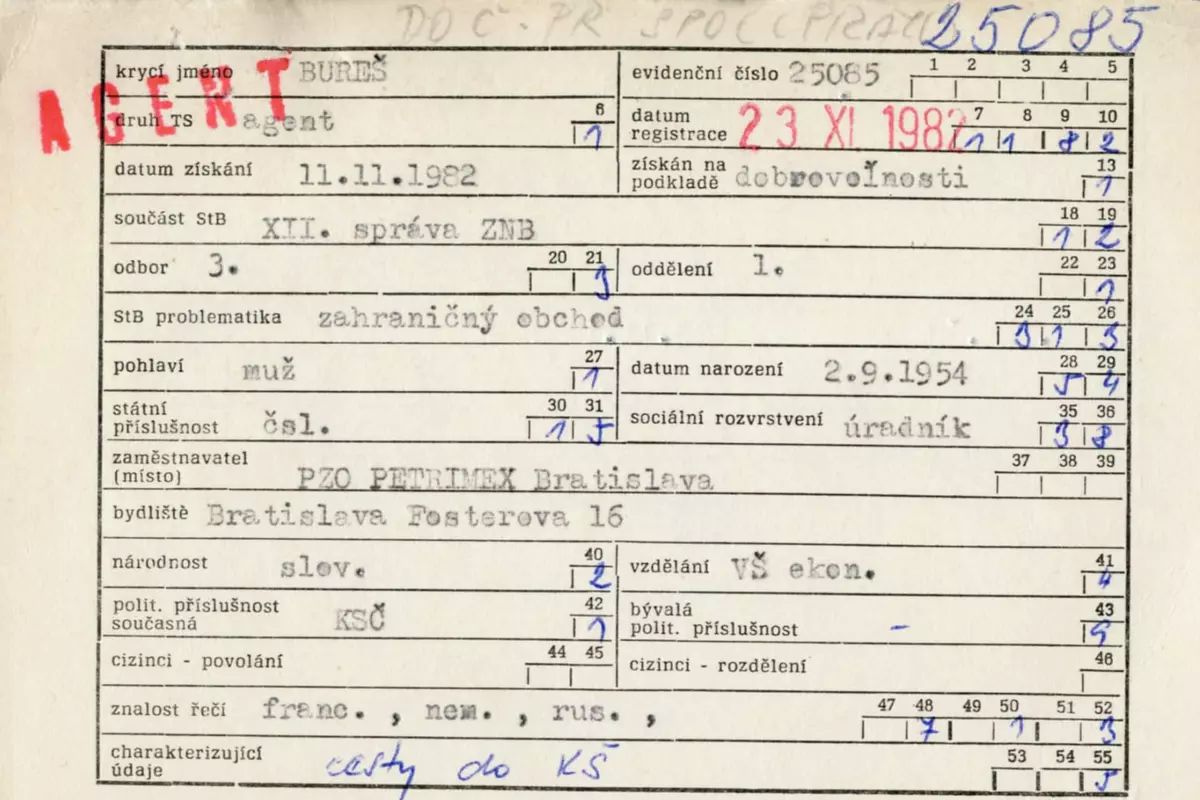 DOČ. PŘ SPOL
25085
AGENT
krycí jméno BUREŠ evidenční číslo 25085 1 2 3 4 5
druh TS agent 6 1 datum registrace 23 XI. 1982 7 8 9 10 1 1 8 2
datum získání 11.11.1982 získán na podkladě dobrovoľnosti 13 1
součást StB XII. správa ZNB 18 19 1 2
odbor 3. 20 21 3 oddělení 1. 22 23 1
StB problematika zahraničný obchod 24 25 26 3 1 3
pohlaví muž 27 1 datum narození 2.9.1954 28 29 5 4
státní příslušnost čsl. 30 31 1 5 sociální rozvrstvení úradník 35 36 3 8
zaměstnavatel (místo) PZO PETRIMEX Bratislava 37 38 39
bydliště Bratislava Fosterova 16
národnost slov. 40 2 vzdělání VŠ ekon. 41 4
polit. příslušnost současná KSČ 42 1 bývalá polit. příslušnost - 43 9
cizinci - povolání 44 45 cizinci - rozdělení 46
znalost řečí franc. , nem. , rus. , 47 48 49 50 51 52 7 1 3
charakterizující údaje cesty do KŠ 53 54 55 5